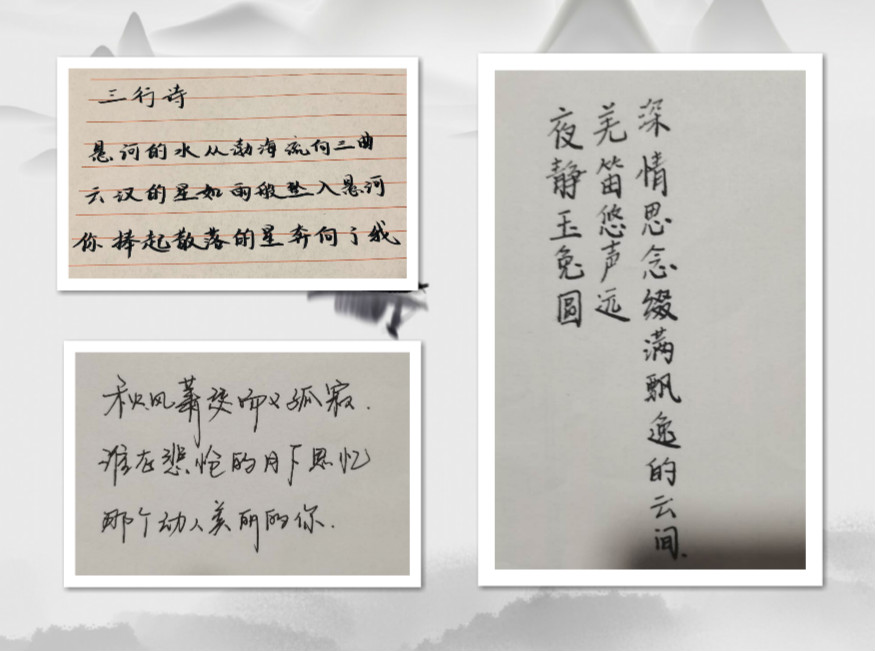 三行诗
悬河的水从渤海流向三曲
云汉的星如雨般坠入悬河
你捧起散落的星奔向了我
秋风萧瑟而又孤寂.
谁在悲怆的月下思忆
那个动人美丽的你.
夜静玉兔圆
羌笛悠声远
深情思念缀满飘逸的云间.